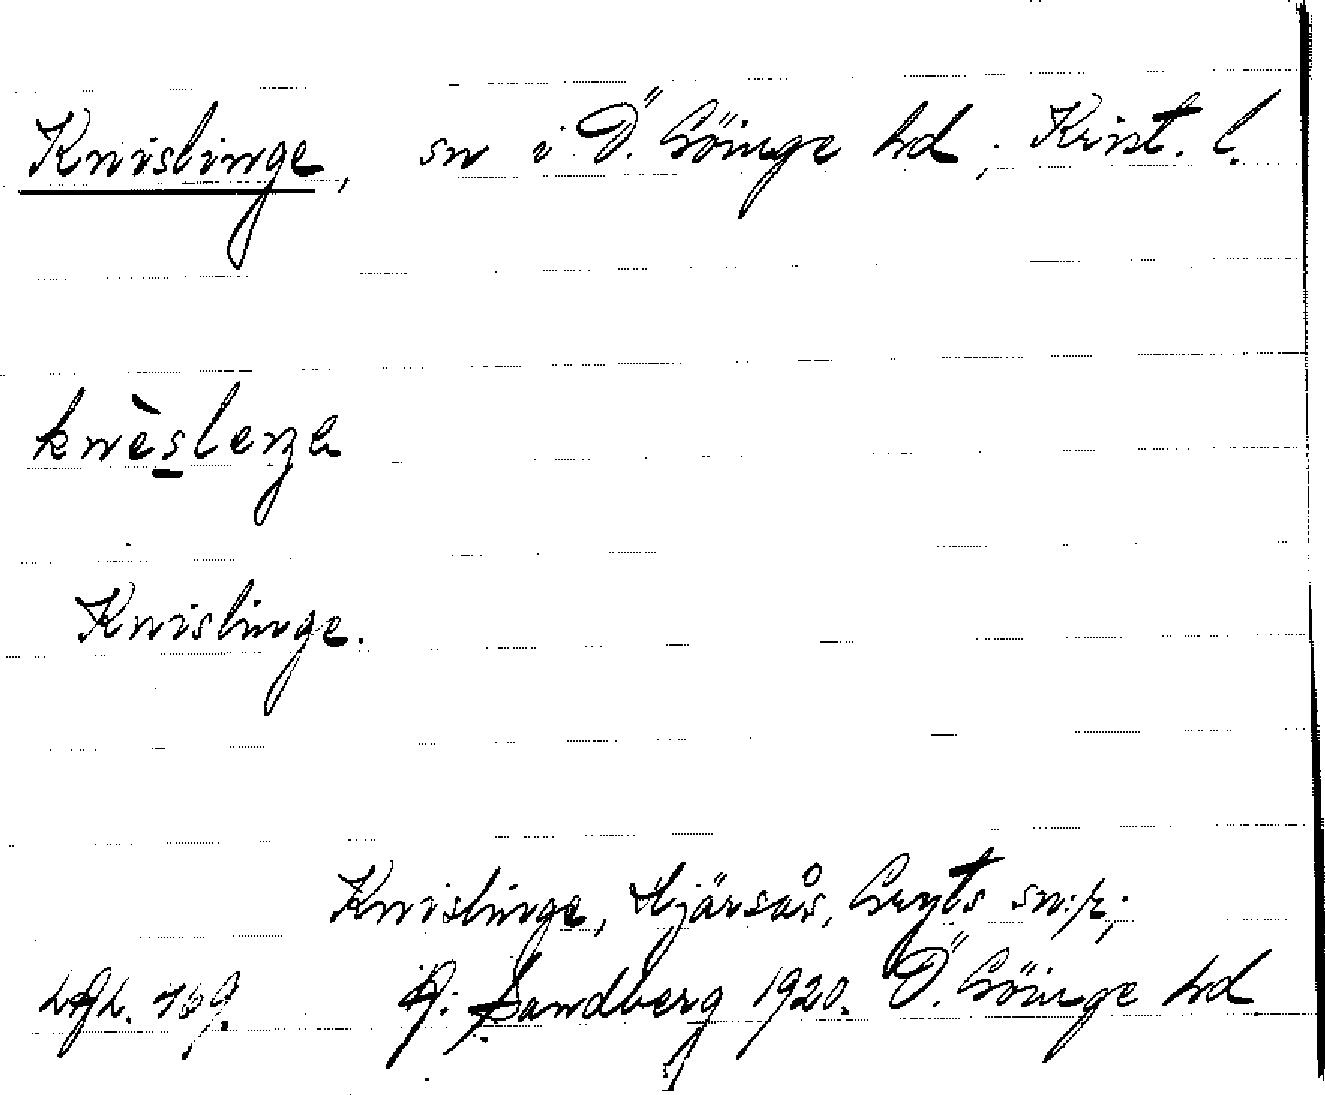 Knislinge, sn i Ö. Göinge hd, Krist. l.
knèslenge
Knislinge.
Knislinge, Hjärsås, Gryts sn:r,
A. Sandberg 1920. Ö. Göinge hd